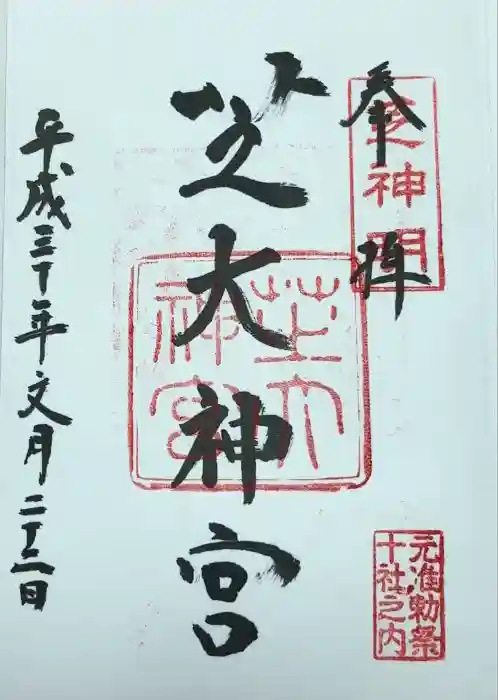 奉拝
芝神明
芝大神宮
芝大
神宮
元准勅祭
十社之内
平成三十年文月二十二日